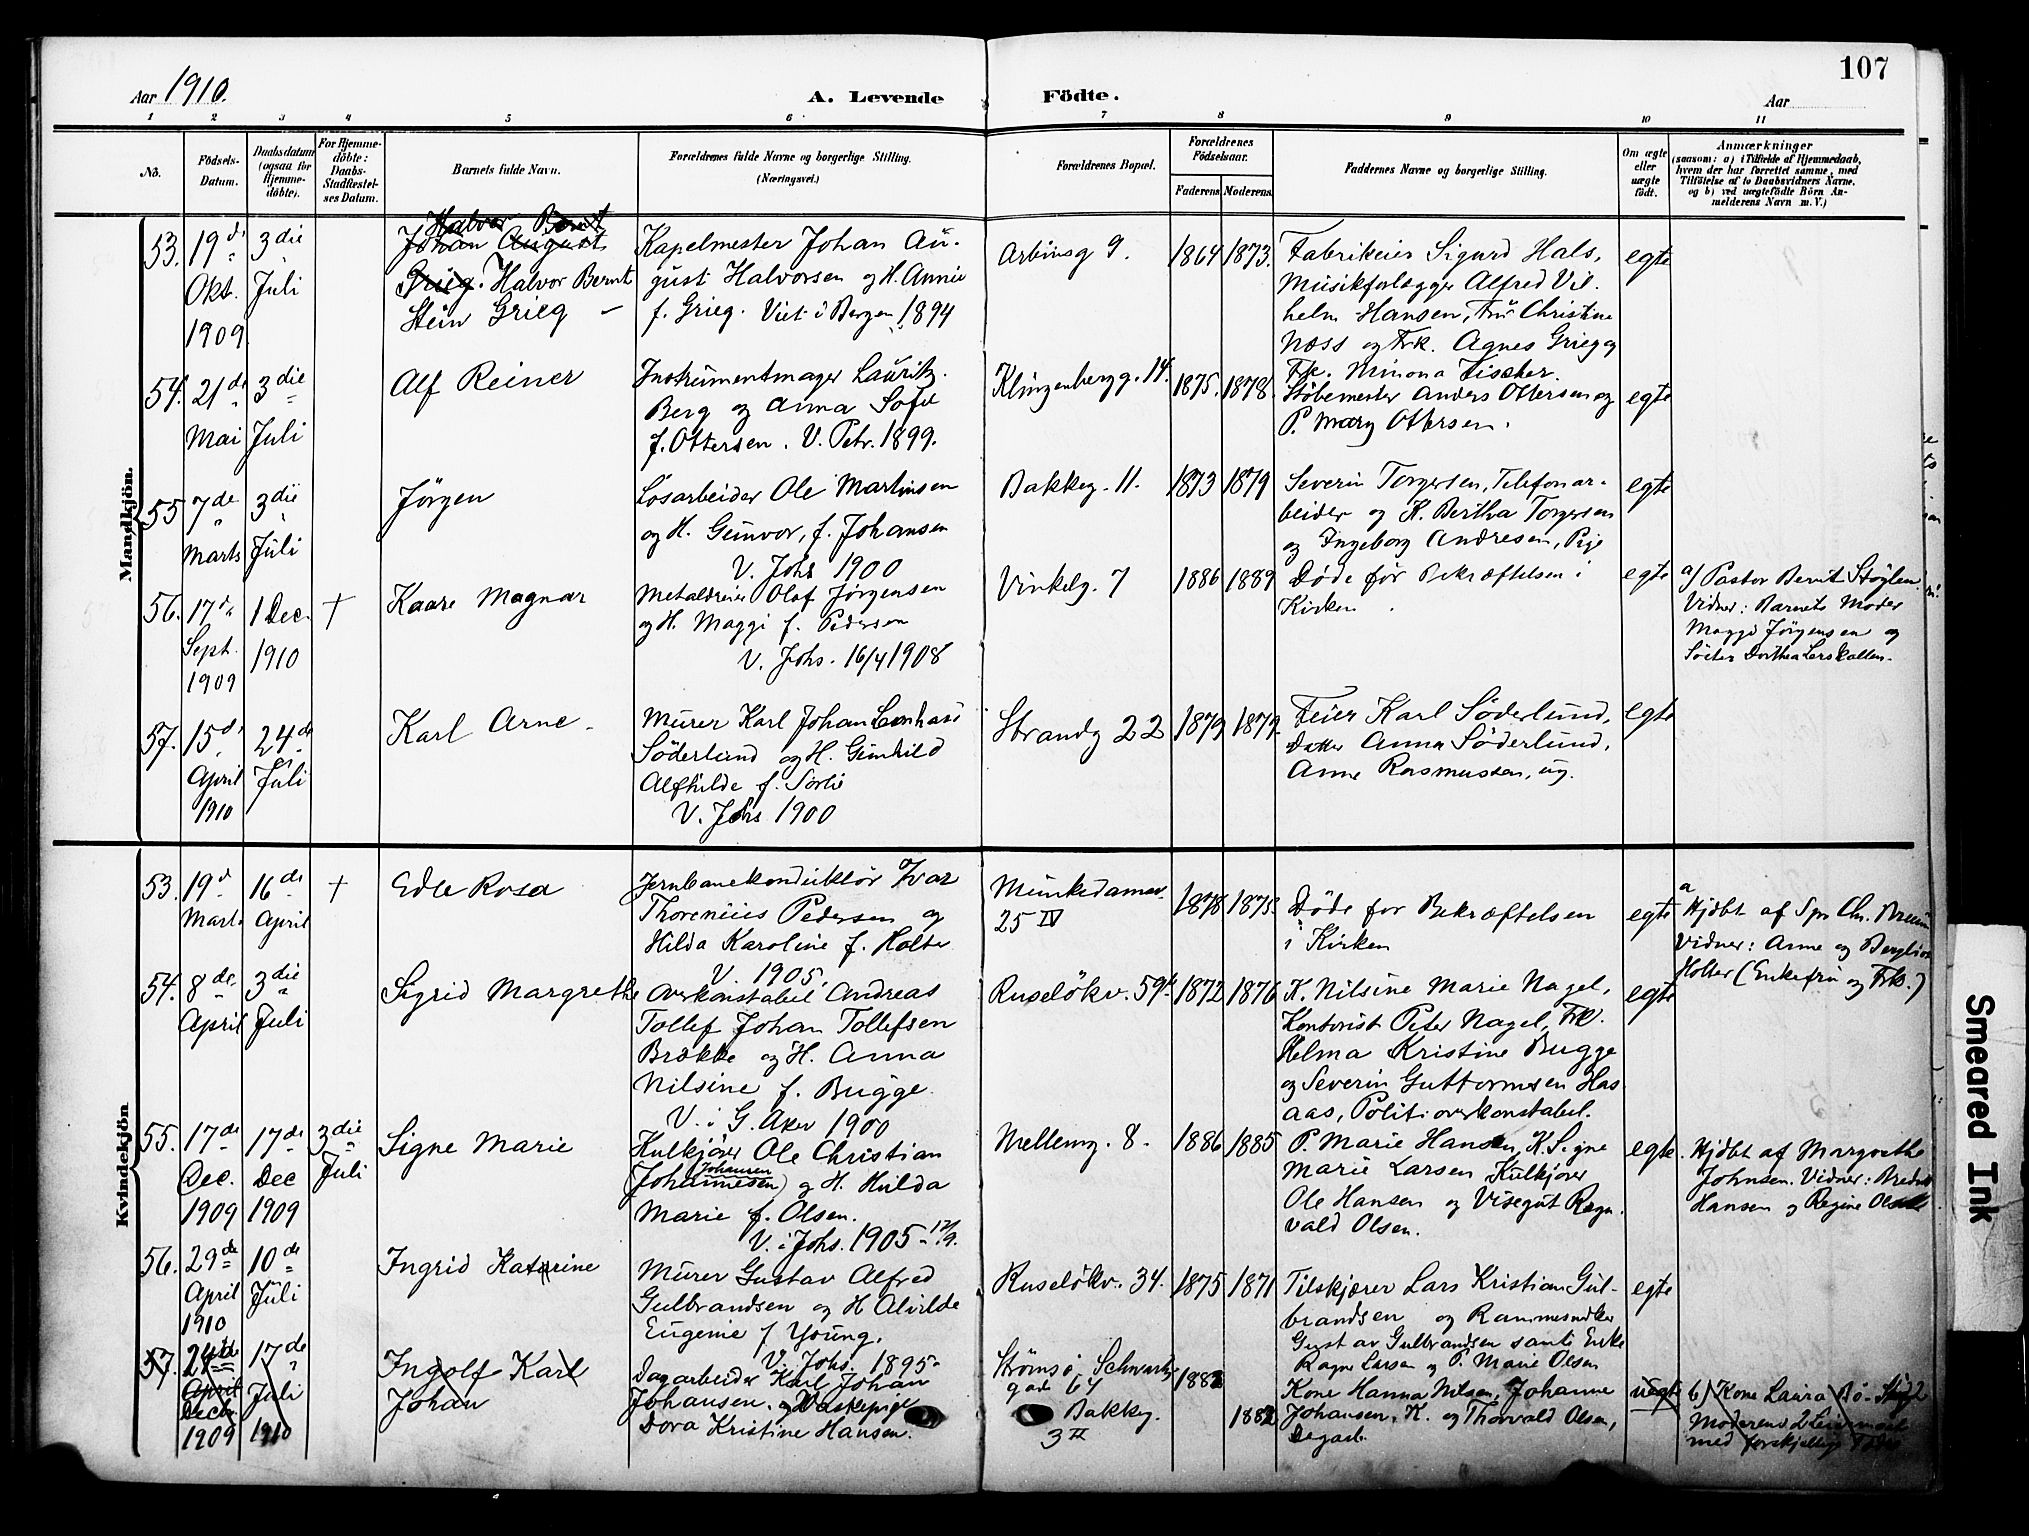 107
Aar 1910.
A. Levende Födte.
Aar
1 2 3 4 5 6 7 8 9 10 11
No.
Födsels-
Datum.
Daabsdatum
(ogsaa for
Hjemme-
döbte).
For Hjemme-
döbte:
Daabs-
Stadfæstel-
ses Datum.
Barnets fulde Navn.
Forældrenes fulde Navne og borgerlige Stilling.
(Næringsvei.)
Forældrenes Bopæl.
Forældrenes
Födselsaar.
Faderens. Moderens.
Faddernes Navne og borgerlige Stilling.
Om ægte
eller
uægte
födt.
Anmærkninger
(saasom: a) i Tilfælde af Hjemmedaab,
hvem der har forrettet samme, med
Tilföielse af to Daabsvidners Navne,
og b) ved uægtefödte Börn An-
melderens Navn m. V.)
Mandkjön.
53.
19d.
Okt.
1909
3die
Juli
Halvor Bernt
Johan August
Grieg. Halvor Bernt
Stein Grieg
Kapelmester Johan Au-
gust Halvorsen og H. Annie
f. Grieg. Viet i Bergen 1894
Arbinsg 9.
1864
1873.
Fabrikeier Sigurd Hals,
Musikforlægger Alfred Vil.
helm Hansen, Fru Christine
Næss og Frk. Agnes Grieg og
Frk. Minona Fischer.
egte
54.
21de
Mai
3die
Juli
Alf Reiner
Instrumentmager Lauritz
Berg og Anna Sofie
f. Ottersen. V. Petr. 1899.
Klingenbergg. 14.
1875.
1878.
Støbemester Anders Ottersen og
P. Mary Ottersen.
egte
55
7de
Marts
3die
Juli
Jörgen
Løsarbeider Ole Martinsen
og H. Gunvor, f. Johansen
V. Johs 1900
Bakkeg. 11.
1873
1879
Severin Torgersen, Telefonar-
beider og K. Bertha Torgersen
og Ingeborg Andresen, Pige
egte
56.
17de
Sept.
1909
1 Dec.
1910
†
Kaare Magnar
Metaldreier Olaf Jörgensen
og H. Maggi f. Pedersen
V. Johs. 16/4 1908
Vinkelg. 7
1886
1889
Døde før Bekræftelsen i
Kirken
egte
a/ Pastor Bernt Støylen.
Vidner: Barnets Moder
Maggi Jörgensen og
Søster Dorthea
57.
15d.
April
1910
24de
Juli
Karl Arne
Murer Karl Johan
Söderlund og H. Gunhild
Alfhilde f. Sørlie
V. Johs 1900
Strandg 22
1879
1879.
Feier Karl Söderlund,
Datter Anna Söderlund,
Anne Rasmussen, ug.
egte
Kvindekjön
53.
19d
Marts
16de
April
†
Edle Rosa
Jernbanekonduktör Ivar
Thorenius Pedersen og
Hilda Karoline f. Holter
V. 1905.
Munkedamsv.
25 IV
1878
1875.
Døde for Bekræftelsen
i Kirken
egte
a
Hjdbt af Spr Chr. Bruun
Vidner: Anne og Bergliot
Holter (Enkefru og Frk.)
54.
8de.
April
3die
Juli
Sigrid Margrethe
Overkonstabel Andreas
Tollef Johan Tollefsen
Brække og H. Anna
Nilsine f. Bugge.
V. i G. Aker 1900
Ruseløkv. 59
1872
1876
K. Nilsine Marie Nagel,
Kontorist Peter Nagel, Frk.
Helma Kristine Bugge
og Severin Guttormsen Has
aas, Politioverkonstabel.
egte
55.
17de
Dec.
1909
17de
Dec
1909
3die
Juli
Signe Marie
Kulkjører Ole Christian
Johansen
(Johannesen) og H. Hulda
Marie f. Olsen.
V. i Johs. 1905
Mellemg. 8.
1886
1885
P. Marie Hansen, K. Signe
Marie Larsen Kulkjører
Ole Hansen og Visegut Ragn
vald Olsen.
egte.
Hjdbt af Margrethe
Johnsen. Vidner:
Hansen og Regine
56.
29de
April
1910
10de
Juli
Ingrid Katrine
Murer Gustav Alfred
Gulbrandsen og H Alvilde
Eugenie f Young.
V. Johs. 1895
Ruseløkv. 34.
1875
1871
Tilskjærer Lars Kristian Gul-
brandsen og Rammesnekker
Gustav Gulbrandsen samt Enke
Ragna Larsen og P. Marie Olsen
egte
57.
24de
April
Decbr.
1909
17de
Juli
1910
Ingolf Karl
Johan
Dagarbeider Karl Johan
Johansen. og Vaskepige
Dora Kristine Hansen.
Strømsø
gade 64
Bakkg.
3 II
1882
1882
Kone Hanna Nilsen, Johanne
Johansen, K. og Thorvald Olsen,
Dagarb.
uegte
b) Kone Laura
Moderens 2
med forskjellige
Smeared Ink